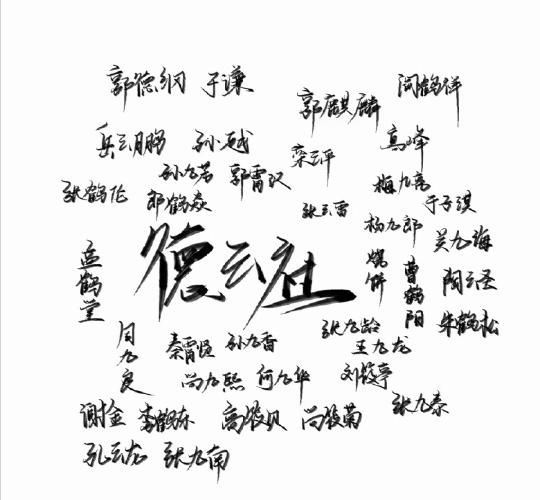 郭德纲 于谦
郭麒麟 阎鹤祥
岳云鹏 孙越
栾云平 高峰
孙九芳 郭霄汉
张鹤伦 郎鹤焱
梅九亮 于子淇
张云雷 杨九郎
吴九海
孟鹤堂
德云社
烧饼 曹鹤阳
阎云圣
朱鹤松
周九良
秦霄贤 孙九香
张九龄 王九龙
尚九熙 何九华
刘筱亭
张九泰
谢金 李鹤东
高筱贝 尚筱菊
孔云龙 张九南